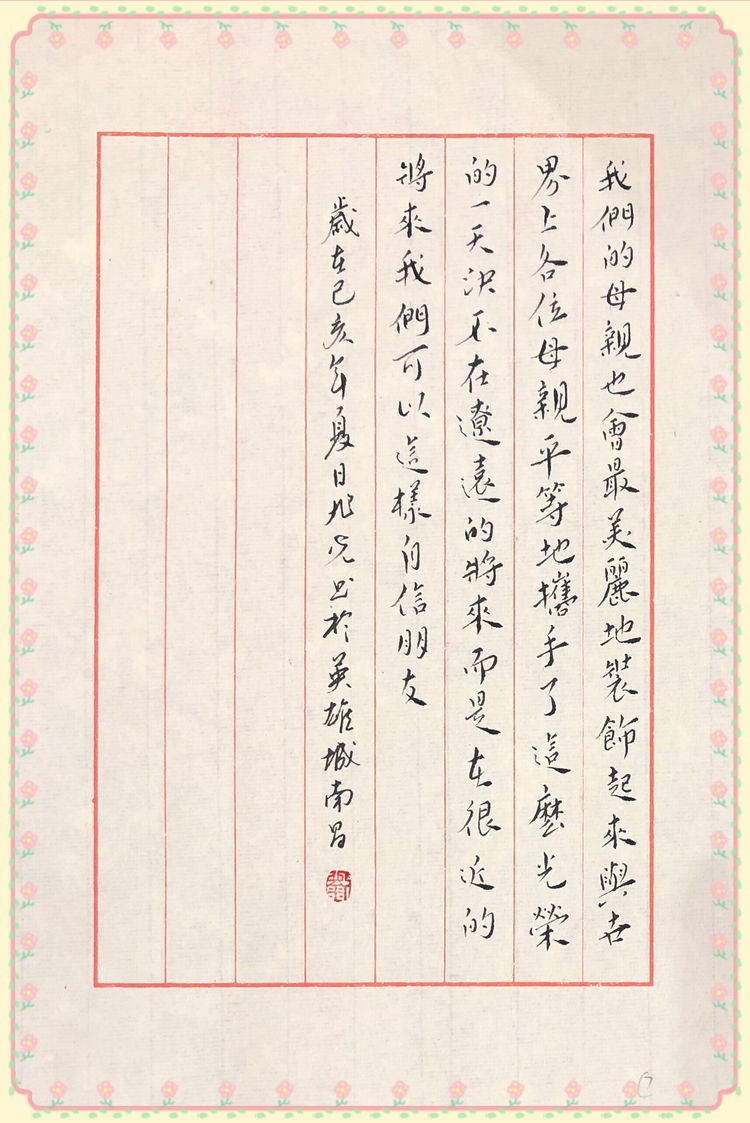 我們的母親也會最美麗地裝飾起來與世
界上各位母親平等地攜手了這麼光榮
的一天決不在遼遠的將來而是在很近的
將來我們可以這樣自信朋友
歲在己亥年夏日兆光书於英雄城南昌